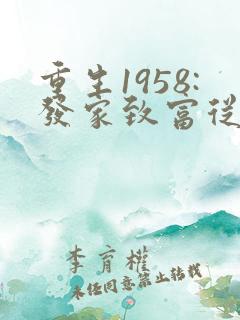 重生1958:
發家致富從
李育權
未任同意禁止轉載